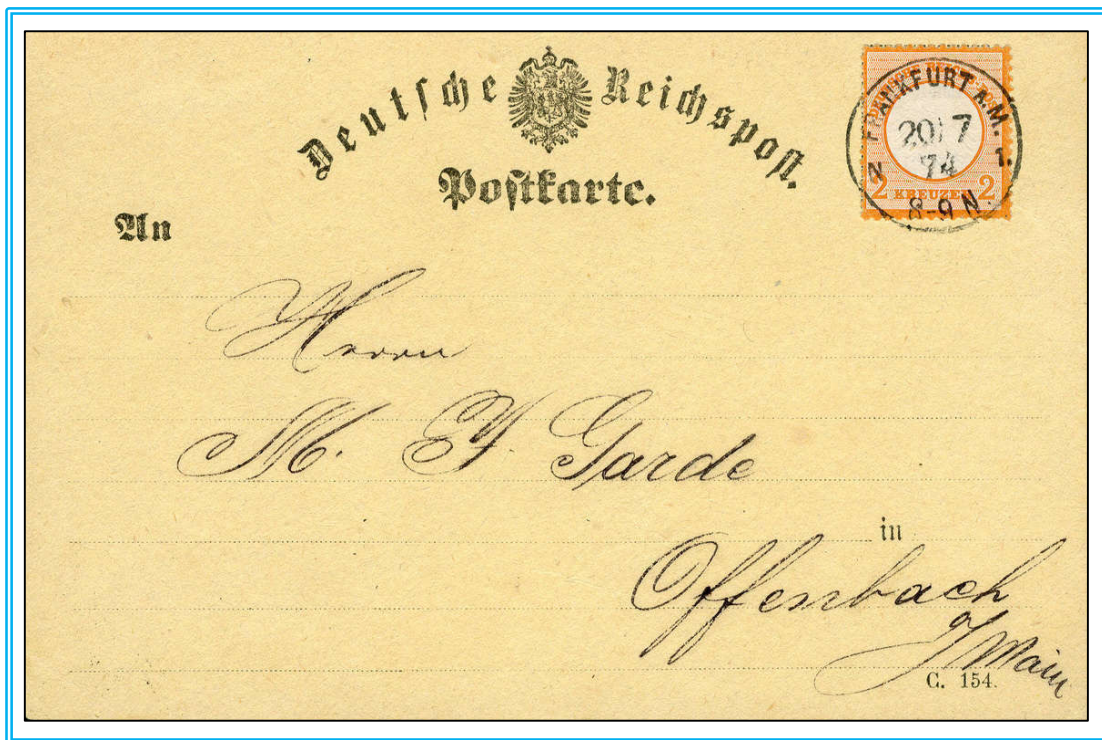 Deutsche Reichspost.
Postkarte.
FRANKFURT A. M.
N 1.
20 7
74
8-9 N.
2 KREUZER 2
An
Herrn
M. Garde
in
Offenbach
a/Main
C. 154.